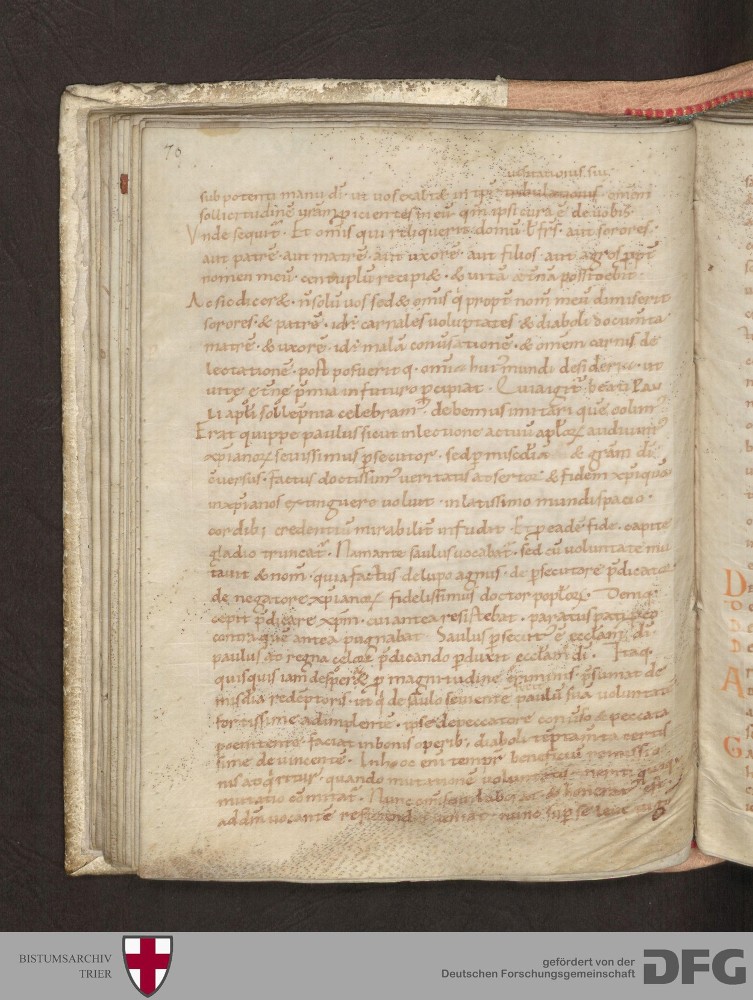 70
uisitationis sui
sub potenti manu di· ut uos exaltet in tpr tribulationis· omem
sollicitudine uram ꝓicientes in eu· qm ipsi cura e de uobis·
Vnde sequit· Et omis qui reliquerit domu t frs· aut sorores·
aut patre· aut matre· aut uxore· aut filios· aut agros ppt
nomen meu· centuplu recipi& · & uita &na possidebit·
Ac si diceret· n solu uos sed & omis q propt nom meu dimiserit
sorores· & patre· id carnales uoluptates & diaboli docum&a
matre· & uxore· id mala conuersatione· & omem carnis de
lectatione· post posuerit q· omia hui mundi desideria· ut
uite &ne pmia in futuro pcipiat· Quia igit beati Pau
li apli sollepnia celebram· debemus imitari que colim
Erat quippe paulus sicut in lectione actuu aploꝝ audiuim
xpianoꝝ seuissimus psecutor· sed p misedia & gram di
cuersus· factus doctissim ueritatis assertor & fidem xpi qua
in xpianos extinguere uoluit· in latissimo mundi spacio·
cordib; credentiu mirabilit infudit· Et p eade fide· capite
gladio truncat· Nam ante saulus uocabat· sed cu uoluntate mu
tauit & nom· quia factus de lupo agnus· de psecutore pdicator
de negatore xpianoꝝ fidelissimus doctor populoꝝ· Deniq·
cepit pdicare xpm· cui antea resistebat· paratus pati p eo
contra que antea pugnabat Saulus psecut e eccliam di·
paulus ad regna celoꝝ pdicando pduxit eccliam di· Itaq·
quisquis iam desperat p magnitudine criminis· psumat de
misdia redeptoris· ut q de saulo seuiente paulu sua uoluntate
fortissime adimplente· ipse de peccatore conuso & peccata
poenitente· faciat in bonis operib; diaboli teptamta certis
sime deuincente· In hoc eni tempr beneficiu remissio
nis adqrit· quando mutatione uoluntatis
mutatio comitat· Nunc onusti laborat & honerat
ad dm uocante refugiendi ueniat· nunc sup se leue iugu
BISTUMSARCHIV
TRIER
gefördert von der
Deutschen Forschungsgemeinschaft
DFG